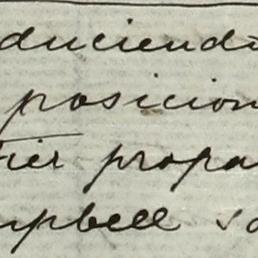 duciendo
posicion
tier propa
mpbell so